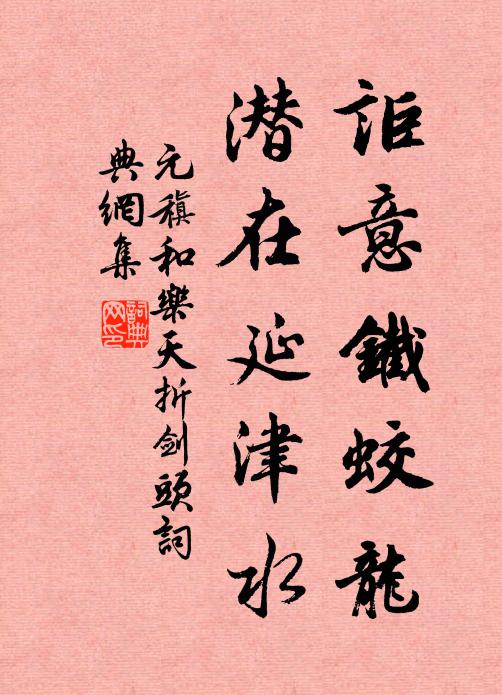 詎意鐵蛟龍
潜在延津水
元稹和樂天折劍頭詞
典網集
詞典
网印